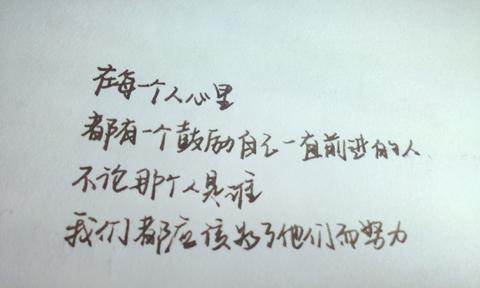 在每一个人心里
都有一个鼓励自己一直前进的人
不论那个人是谁
我们都应该为了他们而努力